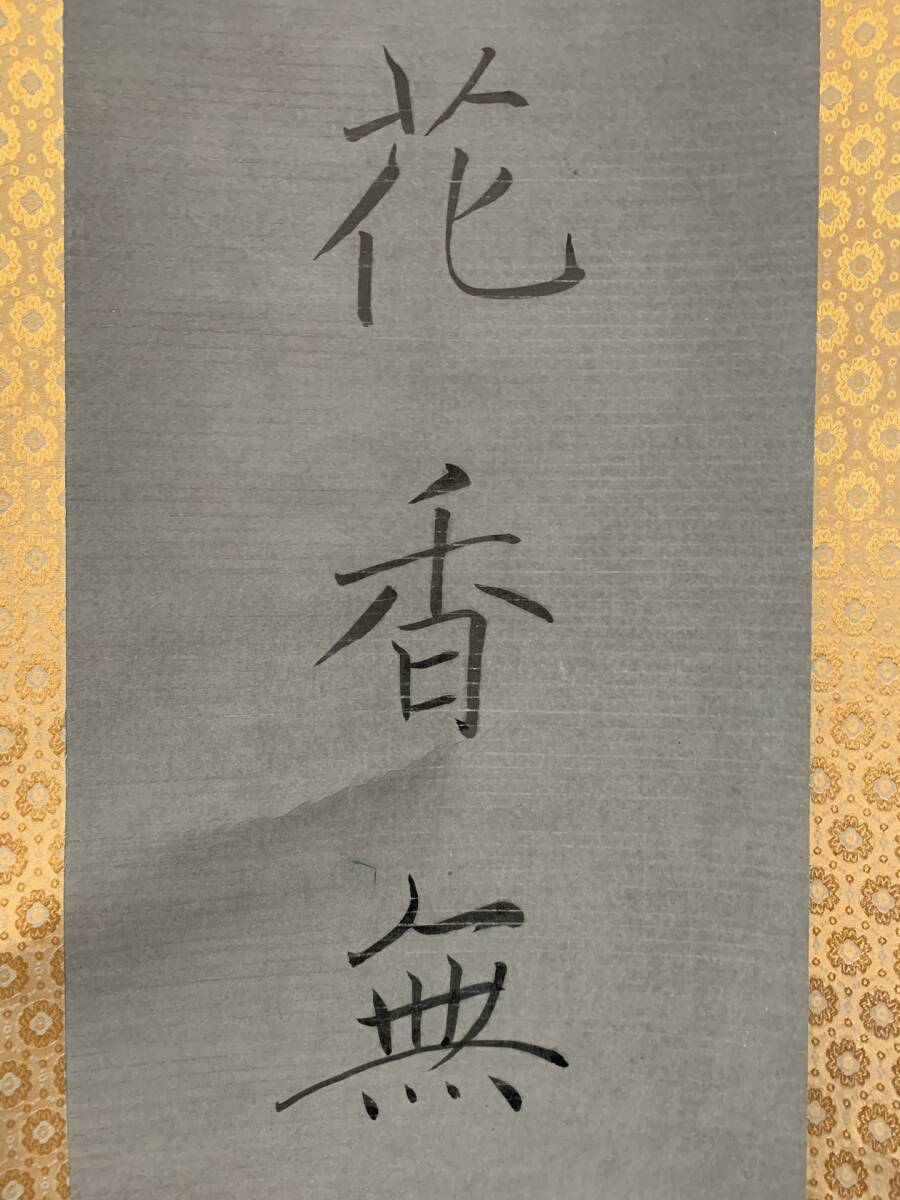 花香無